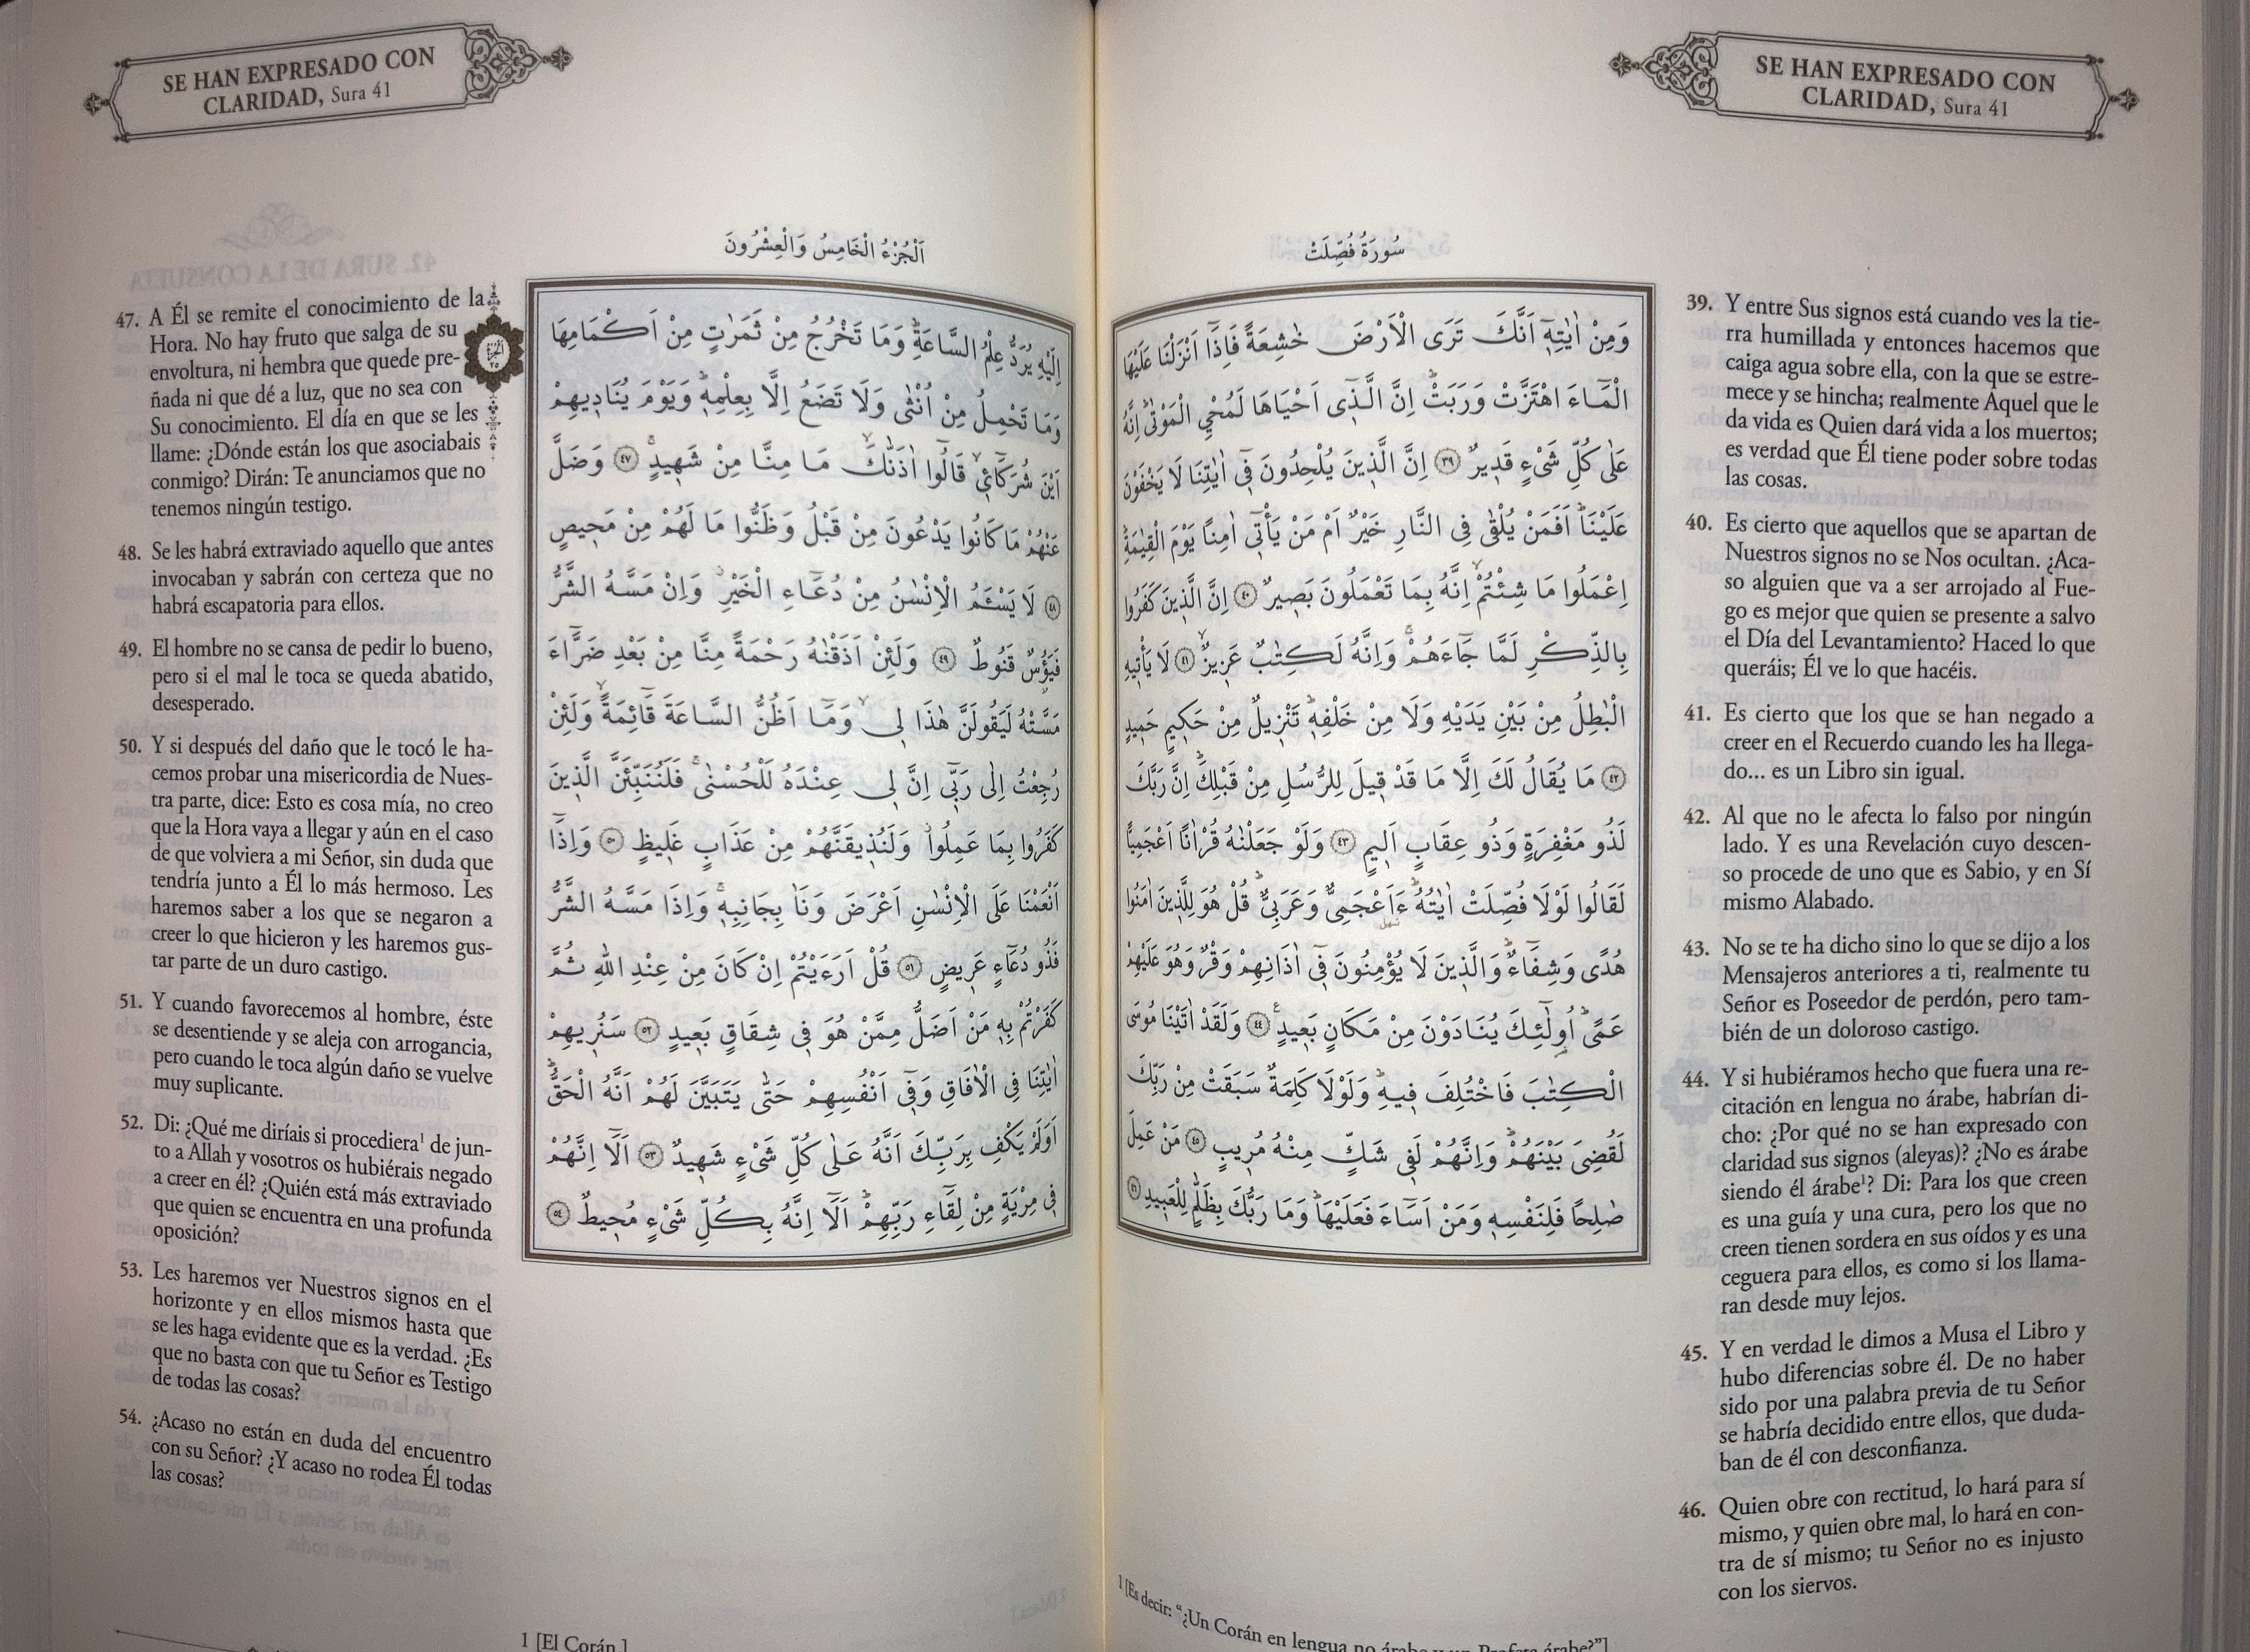 SE HAN EXPRESADO CON
CLARIDAD, Sura 41
سُورَةُ فُصِّلَتْ
وَمِنْ اٰيَاتِهٖٓ اَنَّكَ تَرَى الْاَرْضَ خَاشِعَةً فَاِذَٓا اَنْزَلْنَا عَلَيْهَا
الْمَٓاءَ اهْتَزَّتْ وَرَبَتْۜ اِنَّ الَّـذٖٓى اَحْيَاهَا لَمُحْيِ الْمَوْتٰىۜ اِنَّهُ
عَلٰى كُلِّ شَىْءٍ قَدٖيرٌ ﴿٣٩﴾ اِنَّ الَّذٖينَ يُلْحِدُونَ فٖٓى اٰيَاتِنَا لَا يَخْفَوْنَ
عَلَيْنَاۜ اَفَمَنْ يُلْقٰى فِى النَّارِ خَيْرٌ اَمْ مَنْ يَأْتٖٓى اٰمِنًا يَوْمَ الْقِيٰمَةِۜ
اِعْمَلُوا مَا شِئْتُمْۙ اِنَّهُ بِمَا تَعْمَلُونَ بَصٖيرٌ ﴿٤٠﴾ اِنَّ الَّذٖينَ كَفَرُوا
بِالذِّكْرِ لَمَّا جَٓاءَهُمْۚ وَاِنَّهُ لَكِتَابٌ عَزٖيزٌۙ ﴿٤١﴾ لَا يَأْتٖيهِ
الْبَاطِلُ مِنْ بَيْنِ يَدَيْهِ وَلَا مِنْ خَلْفِهٖۜ تَنْزٖيلٌ مِنْ حَكٖيمٍ حَمٖيدٍ
﴿٤٢﴾ مَا يُقَالُ لَكَ اِلَّا مَا قَدْ قٖيلَ لِلرُّسُلِ مِنْ قَبْلِكَۜ اِنَّ رَبَّكَ
لَذُو مَغْفِرَةٍ وَذُو عِقَابٍ اَلٖيمٍ ﴿٤٣﴾ وَلَوْ جَعَلْنَاهُ قُرْاٰنًا اَعْجَمِيًّا
لَقَالُوا لَوْلَا فُصِّلَتْ اٰيَاتُهُۜ ءَاَعْجَمِىٌّ وَعَرَبِىٌّۜ قُلْ هُوَ لِلَّذٖينَ اٰمَنُوا
هُدًى وَشِفَٓاءٌۜ وَالَّذٖينَ لَا يُؤْمِنُونَ فٖٓى اٰذَانِهِمْ وَقْرٌ وَهُوَ عَلَيْهِمْ
عَمًىۜ اُو۬لٰٓئِكَ يُنَادَوْنَ مِنْ مَكَانٍ بَعٖيدٍ ﴿٤٤﴾ وَلَقَدْ اٰتَيْنَا مُوسَى
الْكِتَابَ فَاخْتُلِفَ فٖيهِۜ وَلَوْلَا كَلِمَةٌ سَبَقَتْ مِنْ رَبِّكَ
لَقُضِىَ بَيْنَهُمْۜ وَاِنَّهُمْ لَفٖى شَكٍّ مِنْهُ مُرٖيبٍ ﴿٤٥﴾ مَنْ عَمِلَ
صَالِحًا فَلِنَفْسِهٖ وَمَنْ اَسَٓاءَ فَعَلَيْهَاۜ وَمَا رَبُّكَ بِظَلَّامٍ لِلْعَبٖيدِ ﴿٤٦﴾
39. Y entre Sus signos está cuando ves la tie-
rra humillada y entonces hacemos que
caiga agua sobre ella, con la que se estre-
mece y se hincha; realmente Aquel que le
da vida es Quien dará vida a los muertos;
es verdad que Él tiene poder sobre todas
las cosas.
40. Es cierto que aquellos que se apartan de
Nuestros signos no se Nos ocultan. ¿Aca-
so alguien que va a ser arrojado al Fue-
go es mejor que quien se presente a salvo
el Día del Levantamiento? Haced lo que
queráis; Él ve lo que hacéis.
41. Es cierto que los que se han negado a
creer en el Recuerdo cuando les ha llega-
do... es un Libro sin igual.
42. Al que no le afecta lo falso por ningún
lado. Y es una Revelación cuyo descen-
so procede de uno que es Sabio, y en Sí
mismo Alabado.
43. No se te ha dicho sino lo que se dijo a los
Mensajeros anteriores a ti, realmente tu
Señor es Poseedor de perdón, pero tam-
bién de un doloroso castigo.
44. Y si hubiéramos hecho que fuera una re-
citación en lengua no árabe, habrían di-
cho: ¿Por qué no se han expresado con
claridad sus signos (aleyas)? ¿No es árabe
siendo él árabe¹? Di: Para los que creen
es una guía y una cura, pero los que no
creen tienen sordera en sus oídos y es una
ceguera para ellos, es como si los llama-
ran desde muy lejos.
45. Y en verdad le dimos a Musa el Libro y
hubo diferencias sobre él. De no haber
sido por una palabra previa de tu Señor
se habría decidido entre ellos, que duda-
ban de él con desconfianza.
46. Quien obre con rectitud, lo hará para sí
mismo, y quien obre mal, lo hará en con-
tra de sí mismo; tu Señor no es injusto
con los siervos.
1 [Es decir: “¿Un Corán en lengua no árabe y un Profeta árabe?”]
SE HAN EXPRESADO CON
CLARIDAD, Sura 41
اَلْجُزْءُ الْخَامِسُ وَالْعِشْرُونَ
اِلَيْهِ يُرَدُّ عِلْمُ السَّاعَةِۜ وَمَا تَخْرُجُ مِنْ ثَمَرَاتٍ مِنْ اَكْمَامِهَا
وَمَا تَحْمِلُ مِنْ اُنْثٰى وَلَا تَضَعُ اِلَّا بِعِلْمِهٖۜ وَيَوْمَ يُنَادٖيهِمْ
اَيْنَ شُرَكَٓائٖىۙ قَالُٓوا اٰذَنَّاكَۙ مَا مِنَّا مِنْ شَهٖيدٍۚ ﴿٤٧﴾ وَضَلَّ
عَنْهُمْ مَا كَانُوا يَدْعُونَ مِنْ قَبْلُ وَظَنُّوا مَا لَهُمْ مِنْ مَحٖيصٍ
﴿٤٨﴾ لَا يَسْـَٔمُ الْاِنْسَانُ مِنْ دُعَٓاءِ الْخَيْرِۘ وَاِنْ مَسَّهُ الشَّرُّ
فَيَؤُ۫سٌ قَنُوطٌ ﴿٤٩﴾ وَلَئِنْ اَذَقْنَاهُ رَحْمَةً مِنَّا مِنْ بَعْدِ ضَرَّٓاءَ
مَسَّتْهُ لَيَقُولَنَّ هٰذَا لٖىۙ وَمَٓا اَظُنُّ السَّاعَةَ قَٓائِمَةًۙ وَلَئِنْ
رُجِعْتُ اِلٰى رَبّٖٓى اِنَّ لٖى عِنْدَهُ لَلْحُسْنٰىۚ فَلَنُنَبِّئَنَّ الَّذٖينَ
كَفَرُوا بِمَا عَمِلُواۘ وَلَنُذٖيقَنَّهُمْ مِنْ عَذَابٍ غَلٖيظٍ ﴿٥٠﴾ وَاِذَٓا
اَنْعَمْنَا عَلَى الْاِنْسَانِ اَعْرَضَ وَنَاٰ بِجَانِبِهٖۚ وَاِذَا مَسَّهُ الشَّرُّ
فَذُو دُعَٓاءٍ عَرٖيضٍ ﴿٥١﴾ قُلْ اَرَءَيْتُمْ اِنْ كَانَ مِنْ عِنْدِ اللّٰهِ ثُمَّ
كَفَرْتُمْ بِهٖ مَنْ اَضَلُّ مِمَّنْ هُوَ فٖى شِقَاقٍ بَعٖيدٍ ﴿٥٢﴾ سَنُرٖيهِمْ
اٰيَاتِنَا فِى الْاٰفَاقِ وَفٖٓى اَنْفُسِهِمْ حَتّٰى يَتَبَيَّنَ لَهُمْ اَنَّهُ الْحَقُّۜ
اَوَلَمْ يَكْفِ بِرَبِّكَ اَنَّهُ عَلٰى كُلِّ شَىْءٍ شَهٖيدٌ ﴿٥٣﴾ اَلَٓا اِنَّهُمْ
فٖى مِرْيَةٍ مِنْ لِقَٓاءِ رَبِّهِمْۜ اَلَٓا اِنَّهُ بِكُلِّ شَىْءٍ مُحٖيطٌ ﴿٥٤﴾
47. A Él se remite el conocimiento de la
Hora. No hay fruto que salga de su
envoltura, ni hembra que quede pre-
ñada ni que dé a luz, que no sea con
Su conocimiento. El día en que se les
llame: ¿Dónde están los que asociabais
conmigo? Dirán: Te anunciamos que no
tenemos ningún testigo.
48. Se les habrá extraviado aquello que antes
invocaban y sabrán con certeza que no
habrá escapatoria para ellos.
49. El hombre no se cansa de pedir lo bueno,
pero si el mal le toca se queda abatido,
desesperado.
50. Y si después del daño que le tocó le ha-
cemos probar una misericordia de Nues-
tra parte, dice: Esto es cosa mía, no creo
que la Hora vaya a llegar y aún en el caso
de que volviera a mi Señor, sin duda que
tendría junto a Él lo más hermoso. Les
haremos saber a los que se negaron a
creer lo que hicieron y les haremos gus-
tar parte de un duro castigo.
51. Y cuando favorecemos al hombre, éste
se desentiende y se aleja con arrogancia,
pero cuando le toca algún daño se vuelve
muy suplicante.
52. Di: ¿Qué me diríais si procediera¹ de jun-
to a Allah y vosotros os hubiérais negado
a creer en él? ¿Quién está más extraviado
que quien se encuentra en una profunda
oposición?
53. Les haremos ver Nuestros signos en el
horizonte y en ellos mismos hasta que
se les haga evidente que es la verdad. ¿Es
que no basta con que tu Señor es Testigo
de todas las cosas?
54. ¿Acaso no están en duda del encuentro
con su Señor? ¿Y acaso no rodea Él todas
las cosas?
1 [El Corán.]